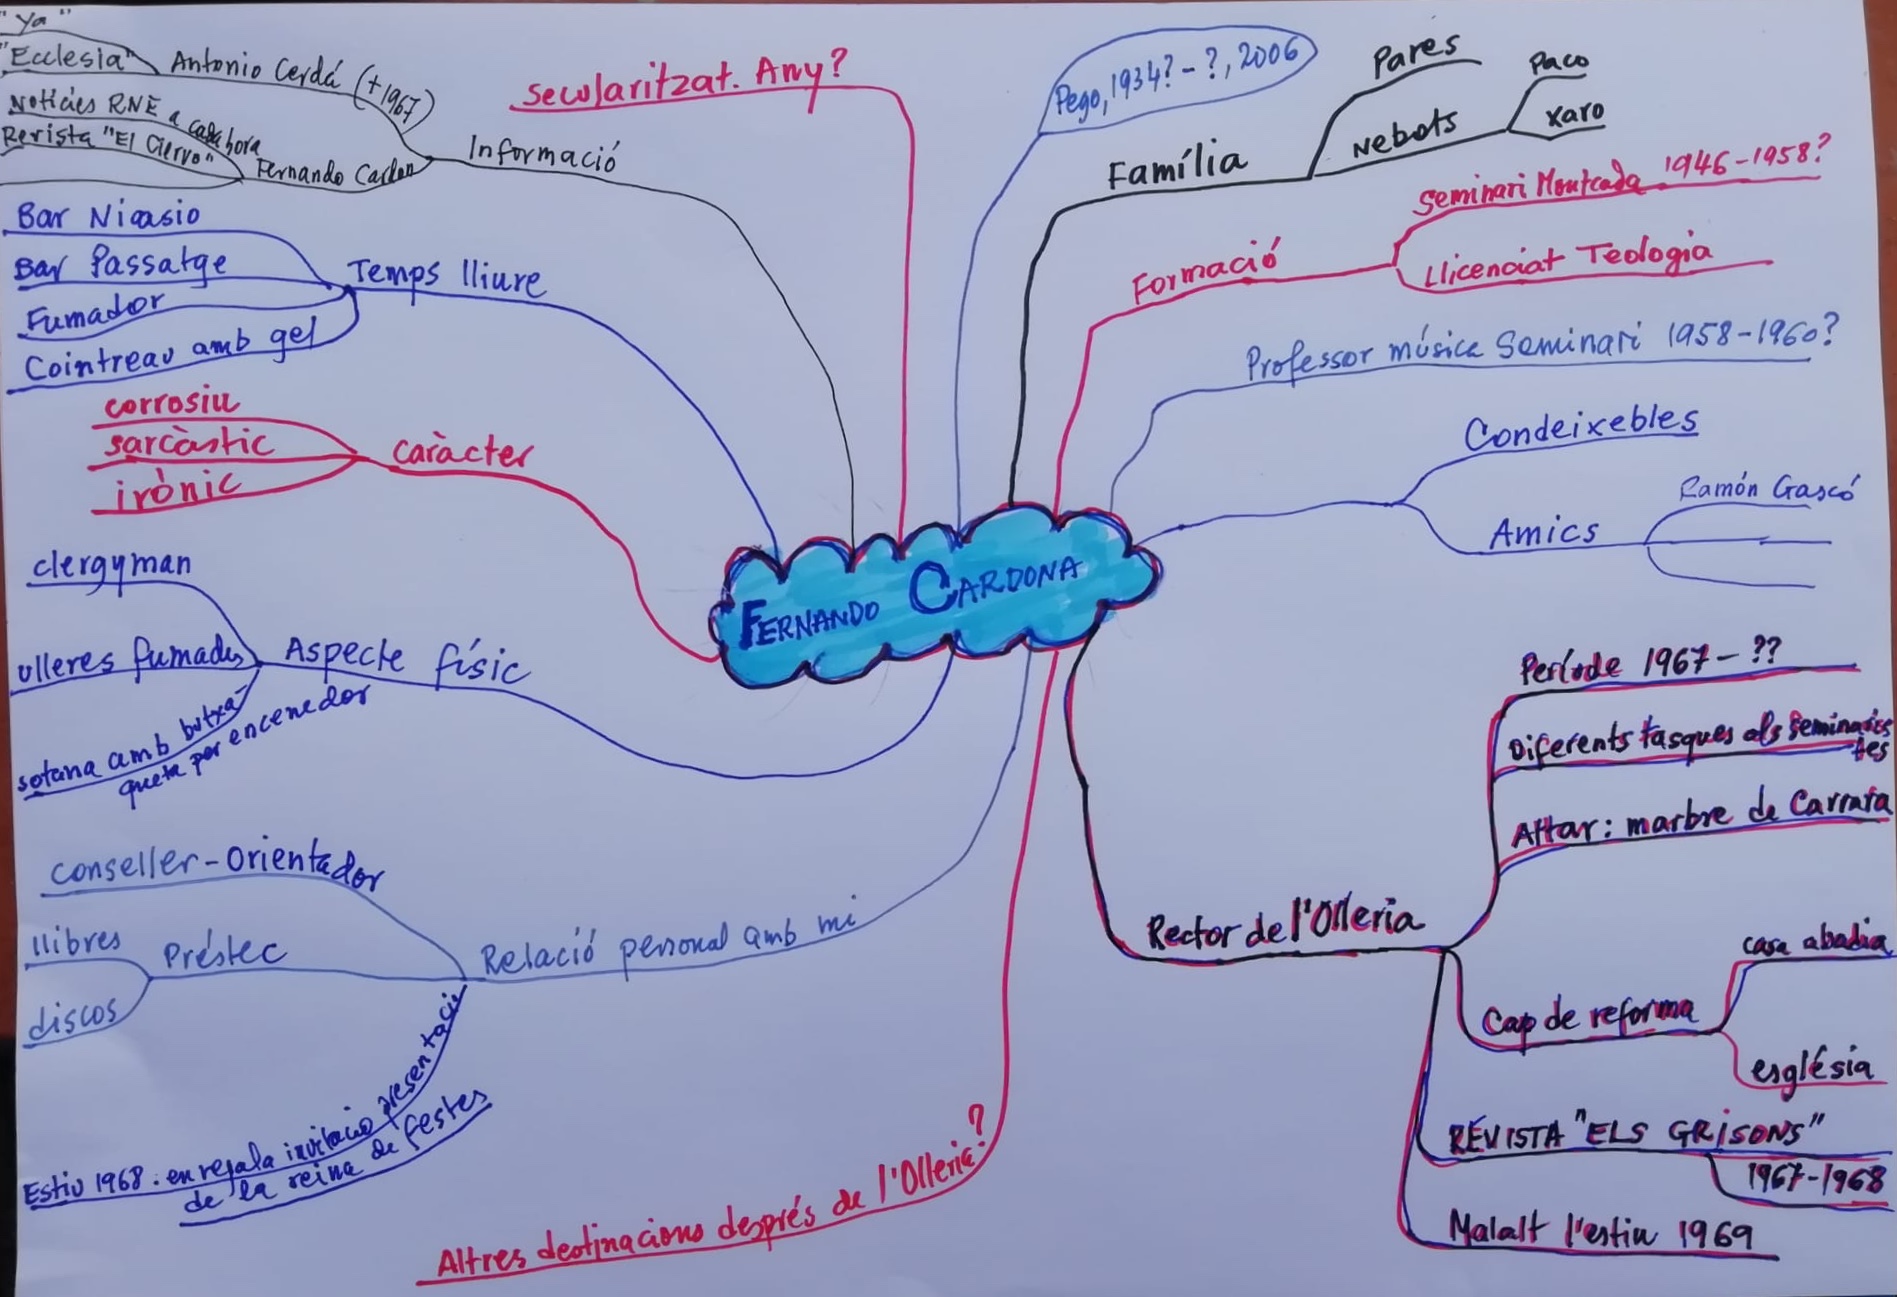 "Ya"
"Ecclesia"
Antonio Cerdá (+1967)
Notícies RNE a cada hora
Revista "El Ciervo"
Fernando Cardon
Informació
secularitzat. Any?
Pego, 1934? - ?, 2006
Família
Pares
Nebots
Paco
Xaro
Formació
Seminari Montcada 1946-1958?
Llicenciat Teologia
Professor música Seminari 1958-1960?
Condeixebles
Amics
Ramón Gascó
Bar Nicasio
Bar Passatge
Fumador
Cointreau amb gel
Temps lliure
corrosiu
sarcàstic
irònic
caràcter
FERNANDO CARDONA
clergyman
ulleres fumades
sotana amb butxa-
queta per encenedor
Aspecte físic
Període 1967 - ??
Diferents tasques als seminaris
tes
Altar: marbre de Carrara
Rector de l'Olleria
Cap de reforma
casa abadia
església
REVISTA "ELS GRISONS"
1967-1968
Malalt l'estiu 1969
conseller-Orientador
llibres
discos
Préstec
Relació personal amb mi
Estiu 1968. em regala invitació presentació
de la reina de festes
Altres destinacions després de l'Olleria?